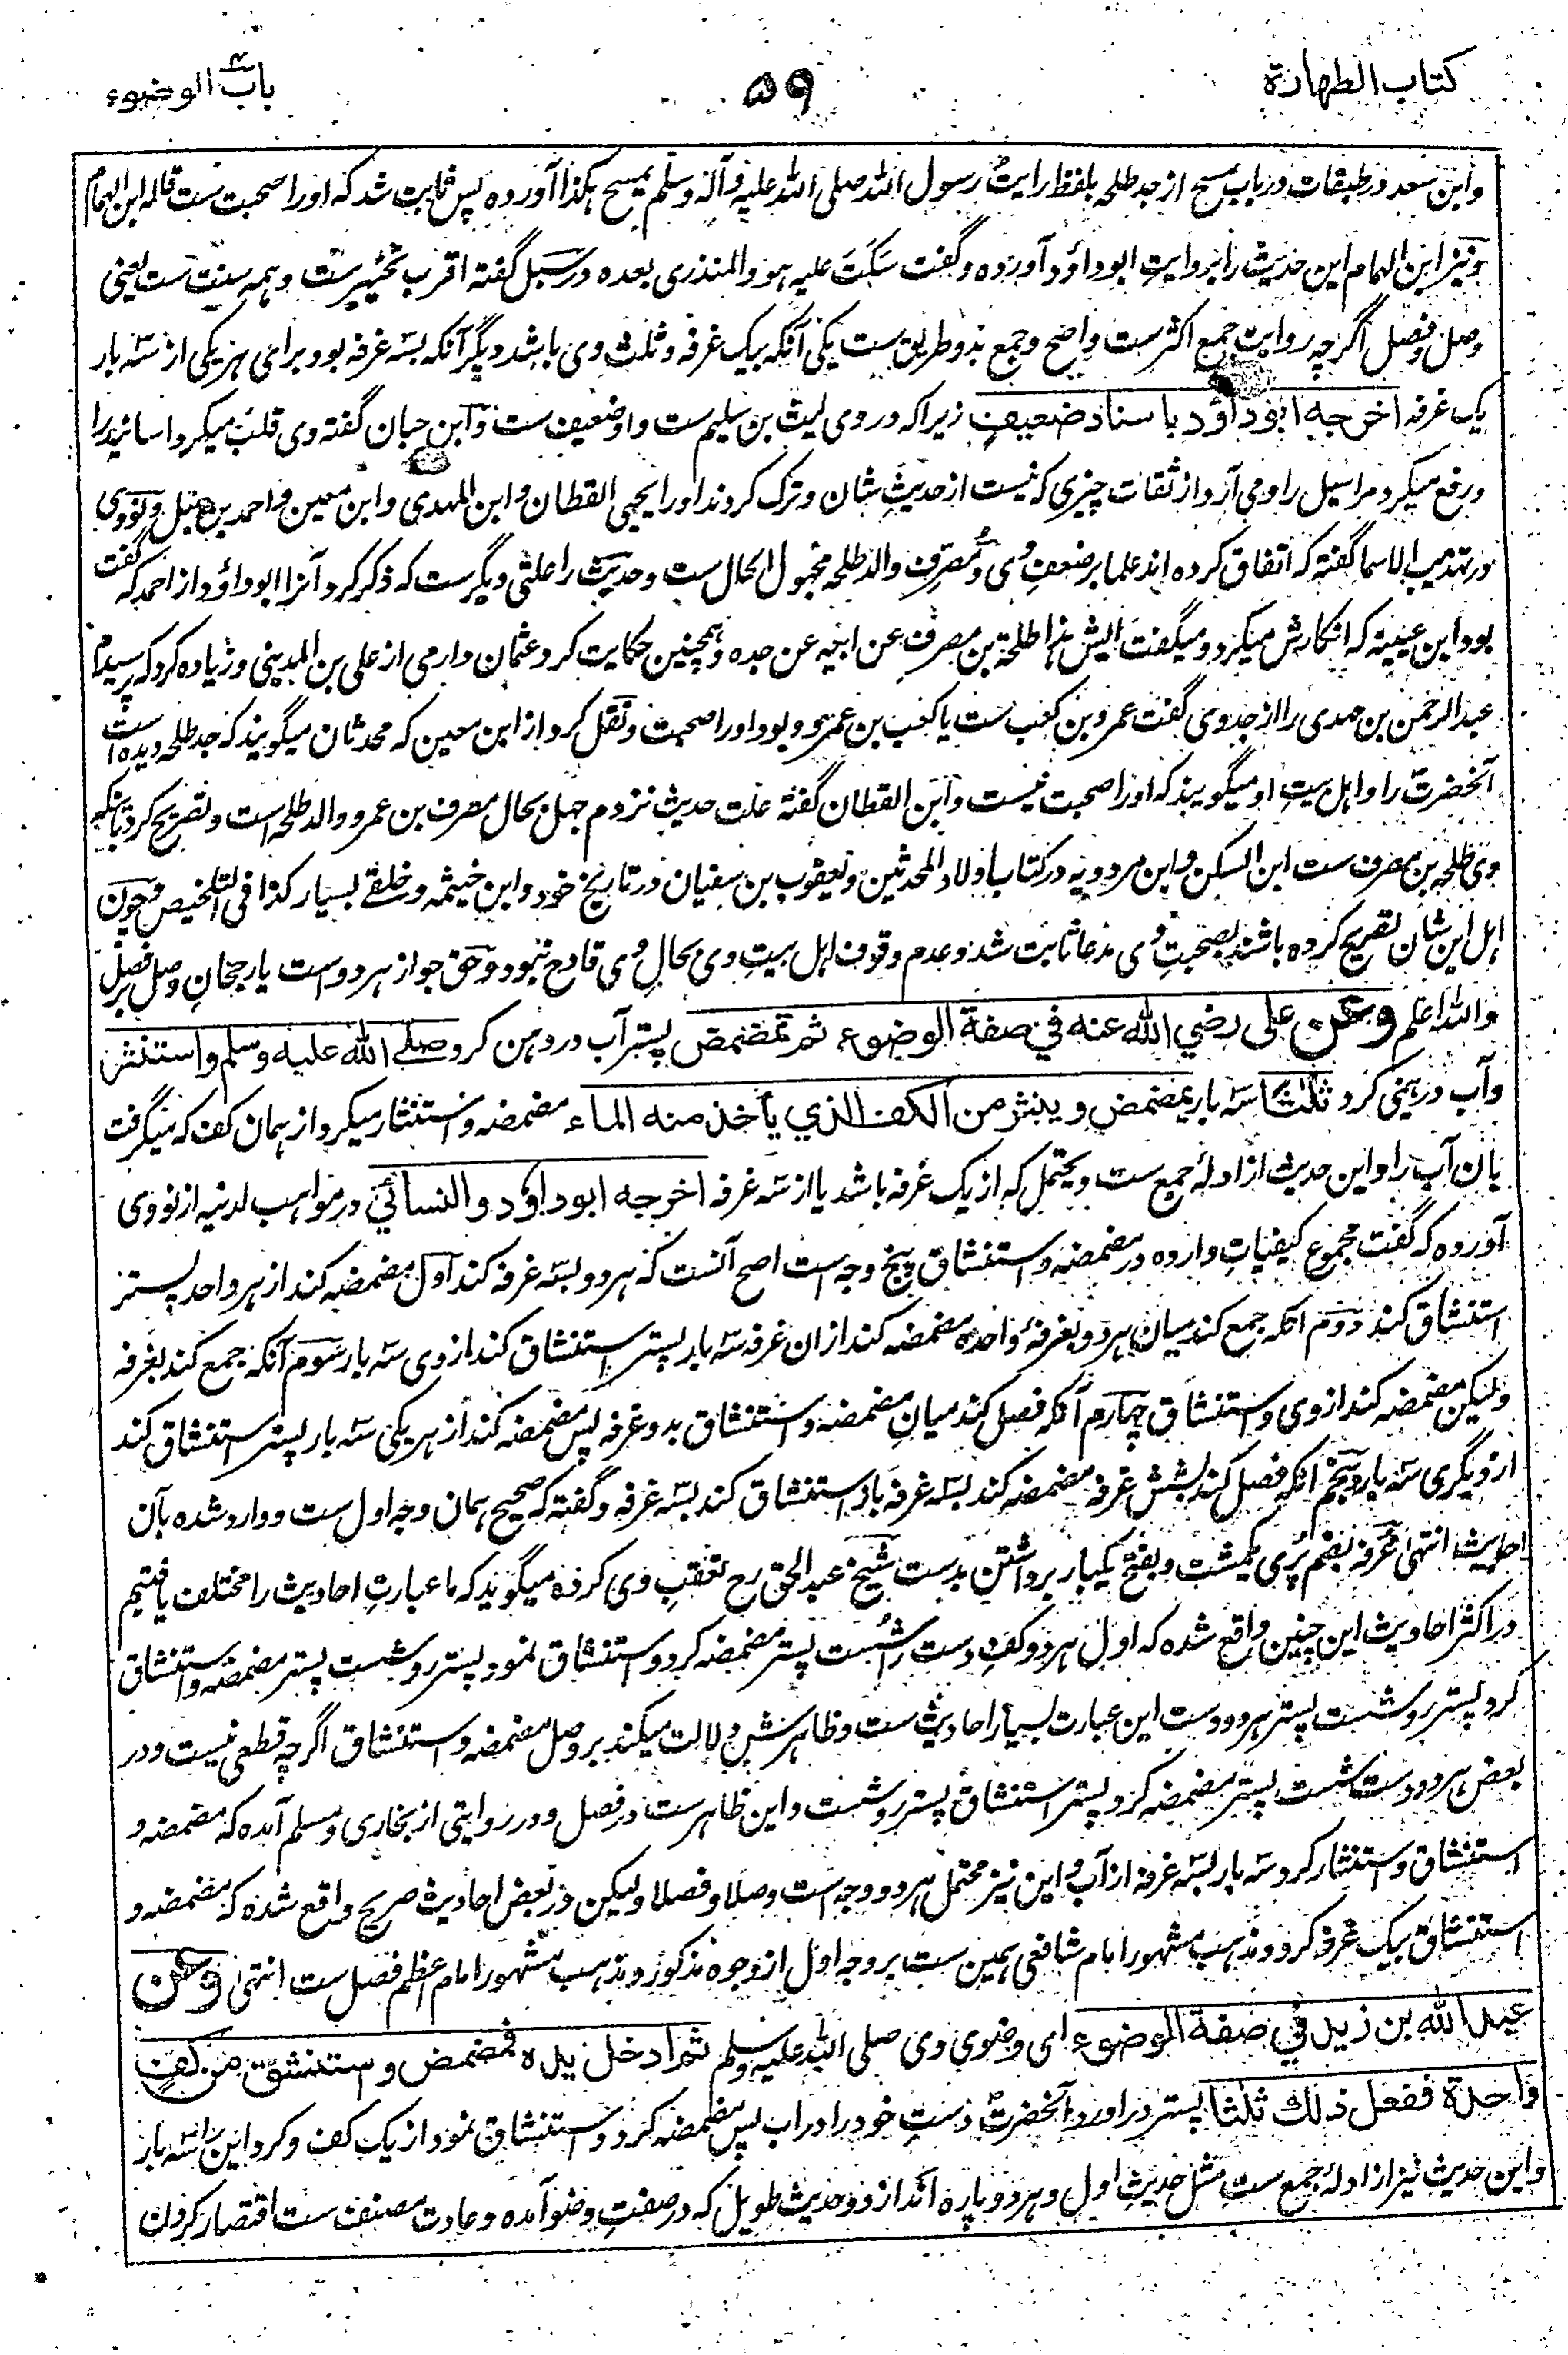 کتاب الطهارة
۵۹
باب الوضوء
وابن سعد در طبقات در باب مسح از جد طلحه بلفظ رایت رسول الله صلی الله علیه وآله وسلم یمسح هکذا آورده پس ثابت شد که او را صحبت ست قاله ابن الهمام
ونیز ابن الهمام این حدیث را بروایت ابوداؤد آورده وگفت سکت علیه هو والمنذری بعده در سبل گفته اقرب تخییرست وهمه سنت ست یعنی
وصل وفصل اگرچه روایت جمع اکثرست واصح وجمع بدو طریق ست یکی آنکه بیک غرفه وثلث وی باشد دیگر آنکه بسه غرفه بود برای هر یکی از سه بار
یک غرفه اخرجه ابوداؤد باسناد ضعیف زیراکه در وی لیث بن سلیم ست واو ضعیف ست وابن حبان گفته وی قلب میکرد اسانید را
ورفع میکرد مراسیل را ومی آرد از ثقات چیزی که نیست از حدیث شان وترک کردند او را یحیی القطان وابن المهدی وابن معین واحمد بن حنبل ونووی
در تهذیب الاسما گفته که اتفاق کرده اند علما بر ضعف وی ومصرف والد طلحه مجهول الحال ست وحدیث را علتی دیگرست که ذکر کرد آنرا ابوداؤد از احمد که گفت
بود ابن عیینه که انکارش میکرد ومیگفت ایش هذا طلحة بن مصرف عن ابیه عن جده وهمچنین حکایت کرد عثمان دارمی از علی بن المدینی وزیاده کرد که پرسیدم
عبدالرحمن بن مهدی را از جد وی گفت عمرو بن کعب ست یا کعب بن عمرو وبود او را صحبت ونقل کرد از ابن معین که محدثان میگویند که جد طلحه دیده است
آنحضرت را واهل بیت او میگویند که او را صحبت نیست وابن القطان گفته علت حدیث نزدم جهل بحال مصرف بن عمرو والد طلحه است وتصریح کرد بآنکه
وی طلحه بن مصرف ست ابن السکن وابن مردویه در کتاب اولاد المحدثین ویعقوب بن سفیان در تاریخ خود وابن خیثمه وخلقے بسیار کذا فی التلخیص وچون
اهل این شان تصریح کرده باشند بصحبت وی مدعا ثابت شد وعدم وقوف اهل بیت وی بحال وی قادح نبود وحق جواز هر دوست یا رجحان وصل بر فصل
والله اعلم وعن علی رضي الله عنه في صفة الوضوء ثم تمضمض پستر آب در دهن کرد صلے الله علیه وسلم واستنثر
وآب در بینی کرد ثلثا سه بار یمضمض وینثر من الکف الذي یأخذ منه الماء مضمضه واستنثار میکرد از همان کف که میگرفت
بان آب را واین حدیث از ادلۀ جمع ست ویحتمل که از یک غرفه باشد یا از سه غرفه اخرجه ابوداؤد والنسائي در مواهب لدنیه از نووی
آورده که گفت مجموع کیفیات وارده در مضمضه واستنشاق پنج وجه است اصح آنست که هر دو بسه غرفه کند اول مضمضه کند از هر واحد پستر
استنشاق کند دوم آنکه جمع کند میان هر دو بغرفۀ واحده مضمضه کند از ان غرفه سه بار پستر استنشاق کند از وی سه بار سوم آنکه جمع کند بغرفه
ولیکن مضمضه کند از وی واستنشاق چهارم آنکه فصل کند میان مضمضه واستنشاق بدو غرفه پس مضمضه کند از هر یکی سه بار پستر استنشاق کند
از دیگری سه بار وپنجم آنکه فصل کند بشش غرفه مضمضه کند بسه غرفه باز استنشاق کند بسه غرفه وگفته که صحیح همان وجه اول ست ووارد شده بآن
احادیث انتهی غرفه بضم پری یکمشت وبفتح یکبار برداشتن بدست شیخ عبدالحق رح تعقب وی کرده میگوید که ما عبارت احادیث را مختلف یافتیم
در اکثر احادیث این چنین واقع شده که اول هر دو کف دست را شست پستر مضمضه کرد واستنشاق نمود پستر رو شست پستر مضمضه واستنشاق
کرد پستر رو شست پستر هر دو دست این عبارت بسیار احادیث ست وظاهرش دلالت میکند بر وصل مضمضه واستنشاق اگرچه قطعی نیست ودر
بعض هر دو دست شست پستر مضمضه کرد پستر استنشاق پستر رو شست واین ظاهرست در فصل ودر روایتی از بخاری ومسلم آمده که مضمضه و
استنشاق واستنثار کرد سه بار بسه غرفه از آب واین نیز محتمل هر دو وجه است وصلا وفصلا ولیکن در بعض احادیث صریح واقع شده که مضمضه و
استنشاق بیک غرفه کرد ومذهب مشهور امام شافعی همین ست بر وجه اول از وجوه مذکور ومذهب مشهور امام اعظم فصل ست انتهی وعن
عبد الله بن زید في صفة الوضوء ای وضوی وی صلی الله علیه وسلم ثم ادخل یده فمضمض واستنشق من کف
واحدة ففعل ذلك ثلثا پستر در آورد آنحضرت دست خود را در آب پس مضمضه کرد واستنشاق نمود از یک کف وکرد این را سه بار
واین حدیث نیز از ادلۀ جمع ست مثل حدیث اول وهر دو پاره اند از دو حدیث طویل که در صفت وضو آمده وعادت مصنف ست اقتصار کردن